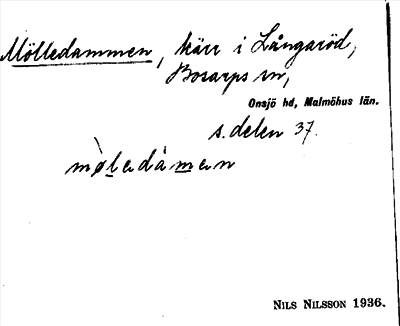 Mölledammen, kärr i Långaröd,
Bosarps sn,
Onsjö hd, Malmöhus län.
s. delen 37.
mø̀ledàmen
NILS NILSSON 1936.